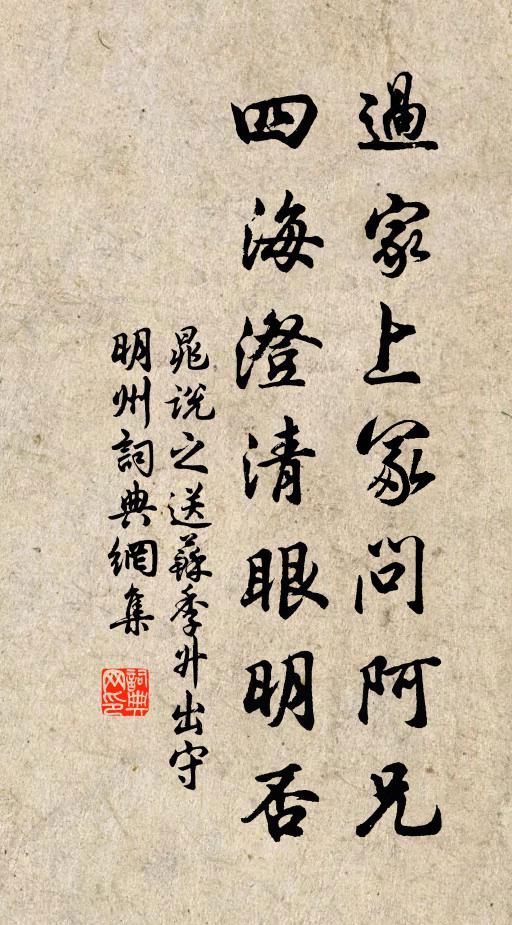 過家上冢問阿兄
四海澄清眼明否
晁說之送蘇季升出守
明州詞典網集
詞典网印